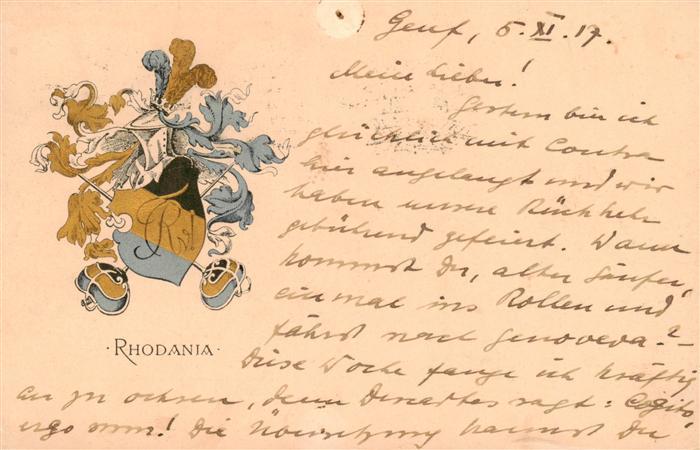 Genf, 5. XI. 17.
Mein Lieber!
Gestern bin ich
glücklich mit Contra
hier angelangt und wir
haben unsere Rückkehr
gebührend gefeiert. Wann
kommst Du, alter Säufer,
einmal ins Rollen und
fährst nach Genoveva?
Diese Woche fange ich kräftig
an zu ochsen, denn Descartes sagt: Cogito,
ergo sum! Die Übersetzung kannst Du
RHODANIA